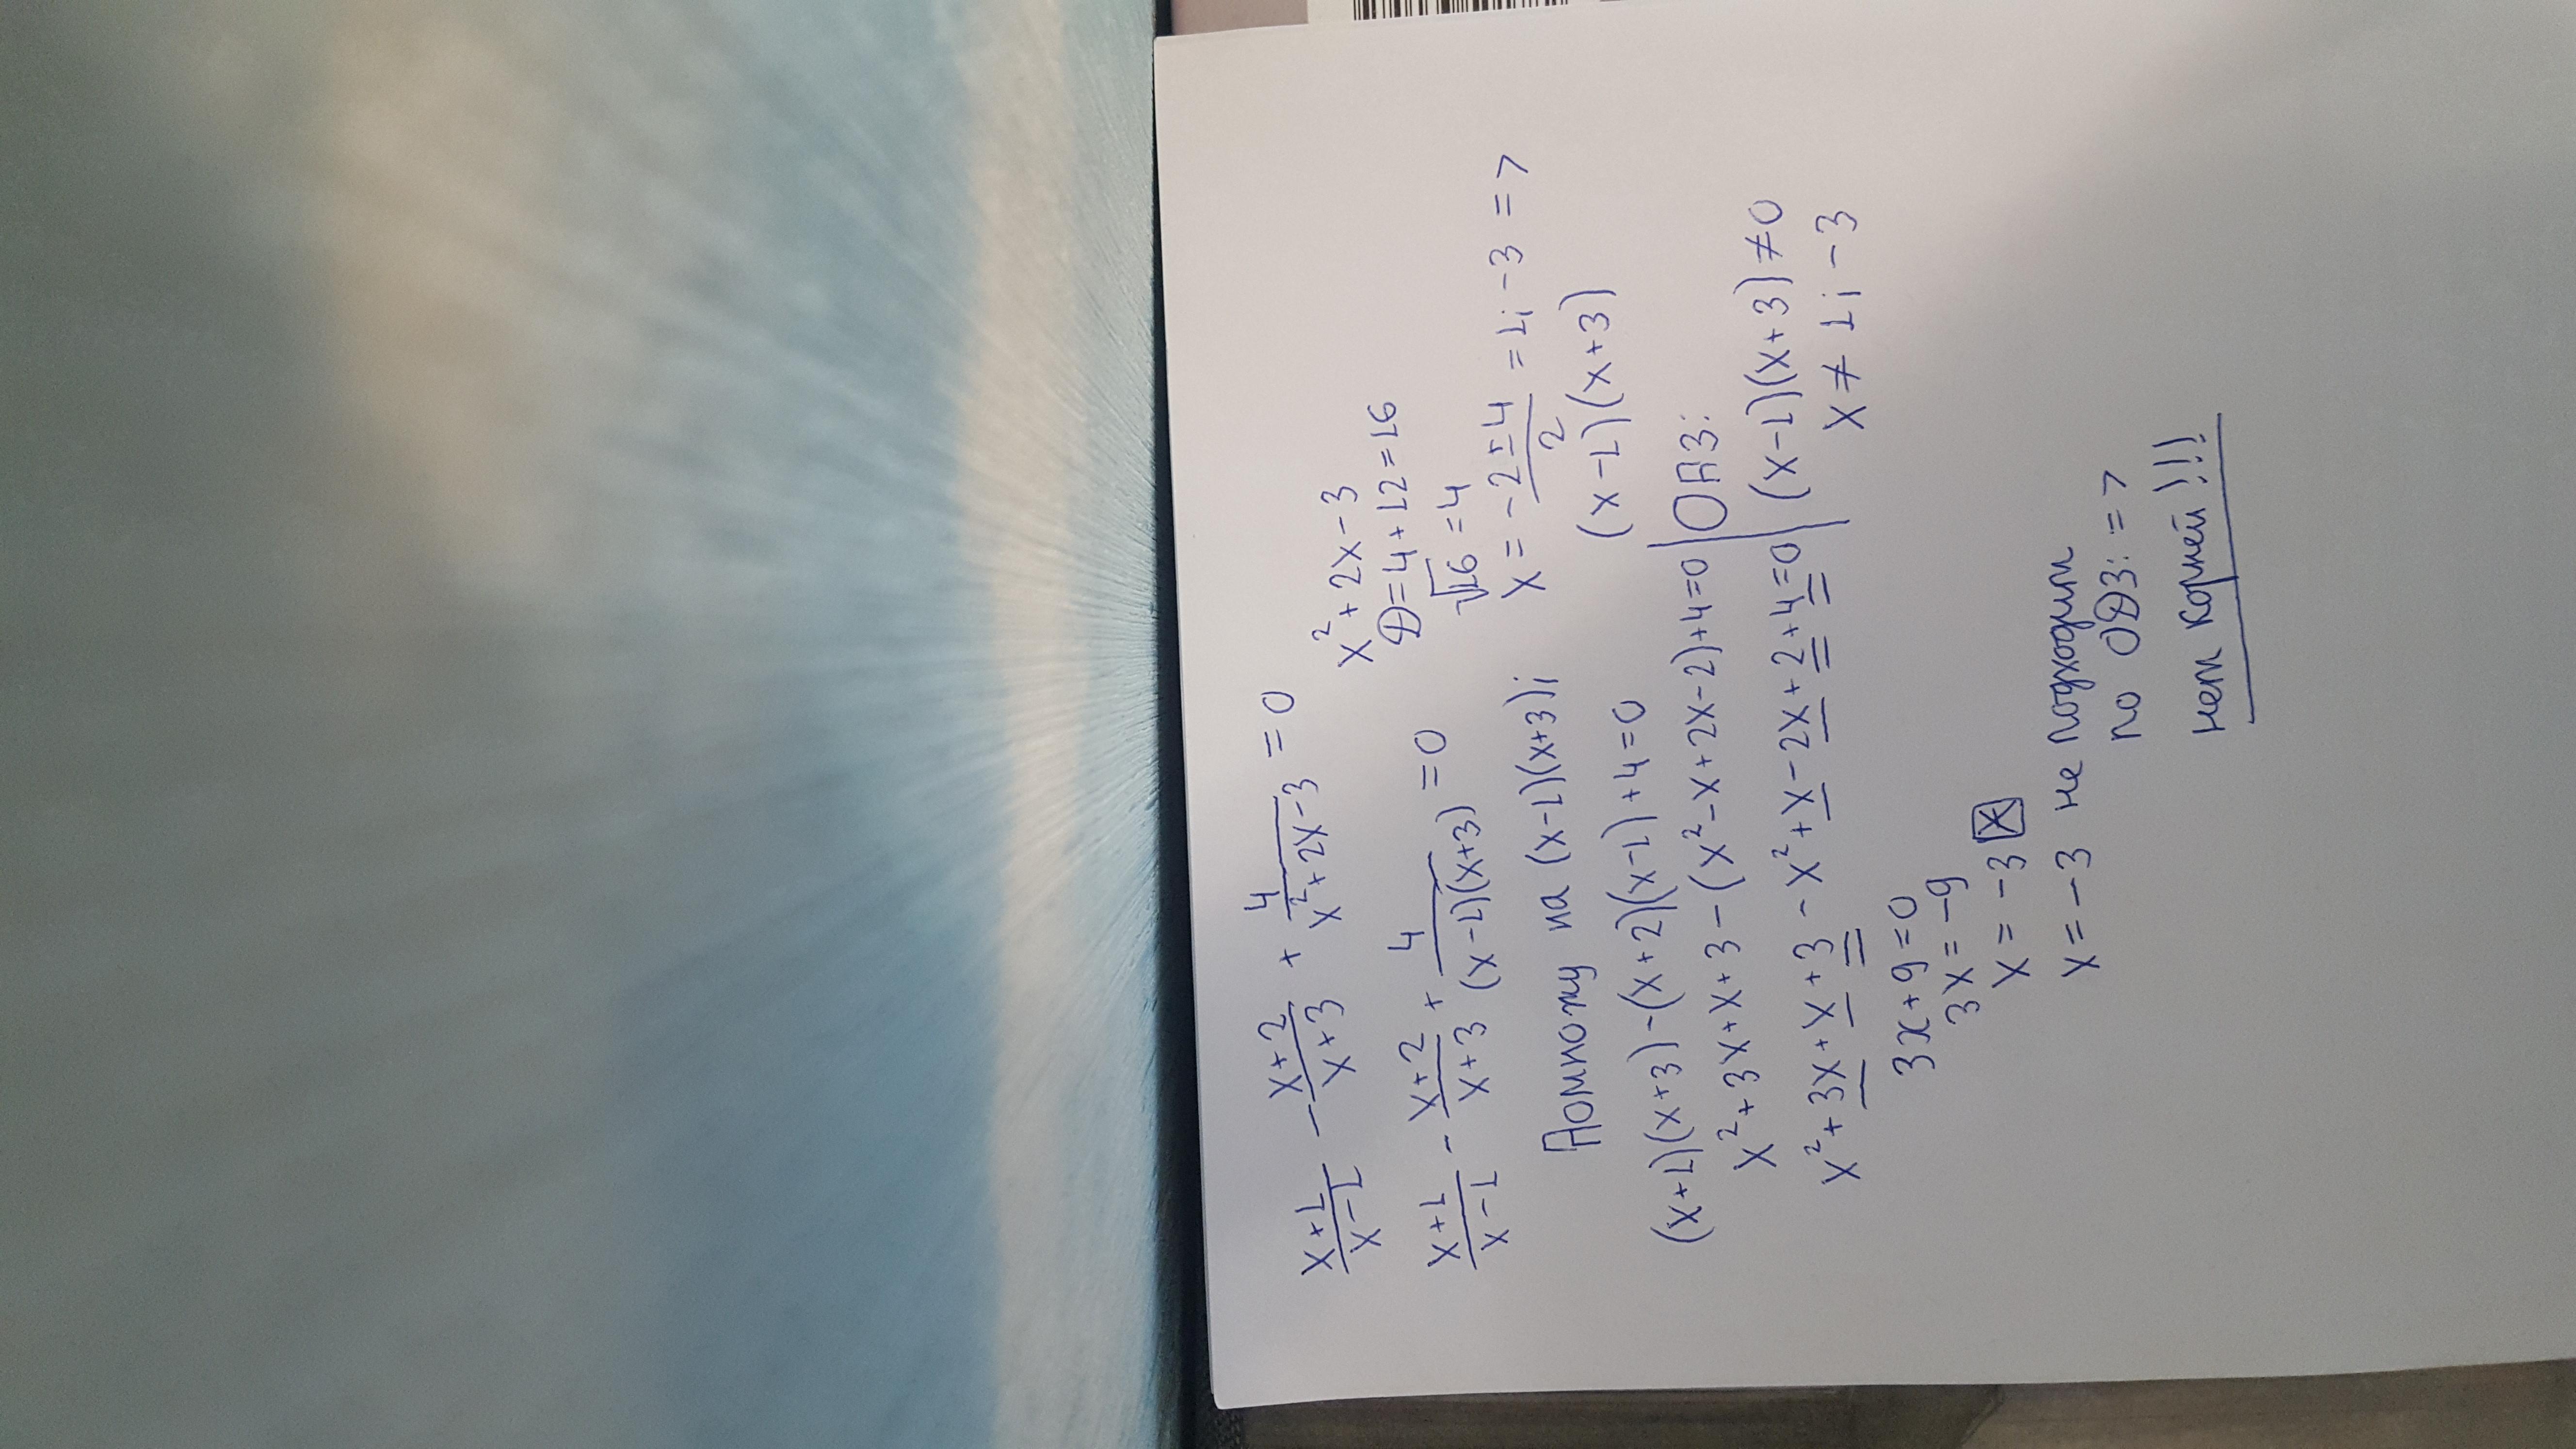 x+1/x-1 - x+2/x+3 + 4/x²+2x-3 = 0
x²+2x-3
D=4+12=16
√16 =4
x+1/x-1 - x+2/x+3 + 4/(x-1)(x+3) = 0
x = -2±4/2 = 1; -3 =>
(x-1)(x+3)
Домножу на (x-1)(x+3);
(x+1)(x+3)-(x+2)(x-1)+4=0
x²+3x+x+3-(x²-x+2x-2)+4=0
ОДЗ:
x²+3x+x+3-x²+x-2x+2+4=0
(x-1)(x+3)≠0
x≠1; -3
3x+9=0
3x=-9
x=-3 x
x=-3 не подходит
по ОДЗ: =>
нет корней!!!